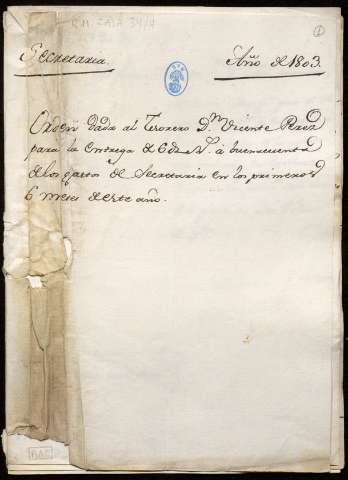 R.M. CAJA 34/4
1
Secretaria. Año de 1803.
Orden dada al Tesorero Dn. Vicente Perez
para la entrega de 6 à buenacuenta
de los gastos de Secretaria en los primeros
6 meses de este año.